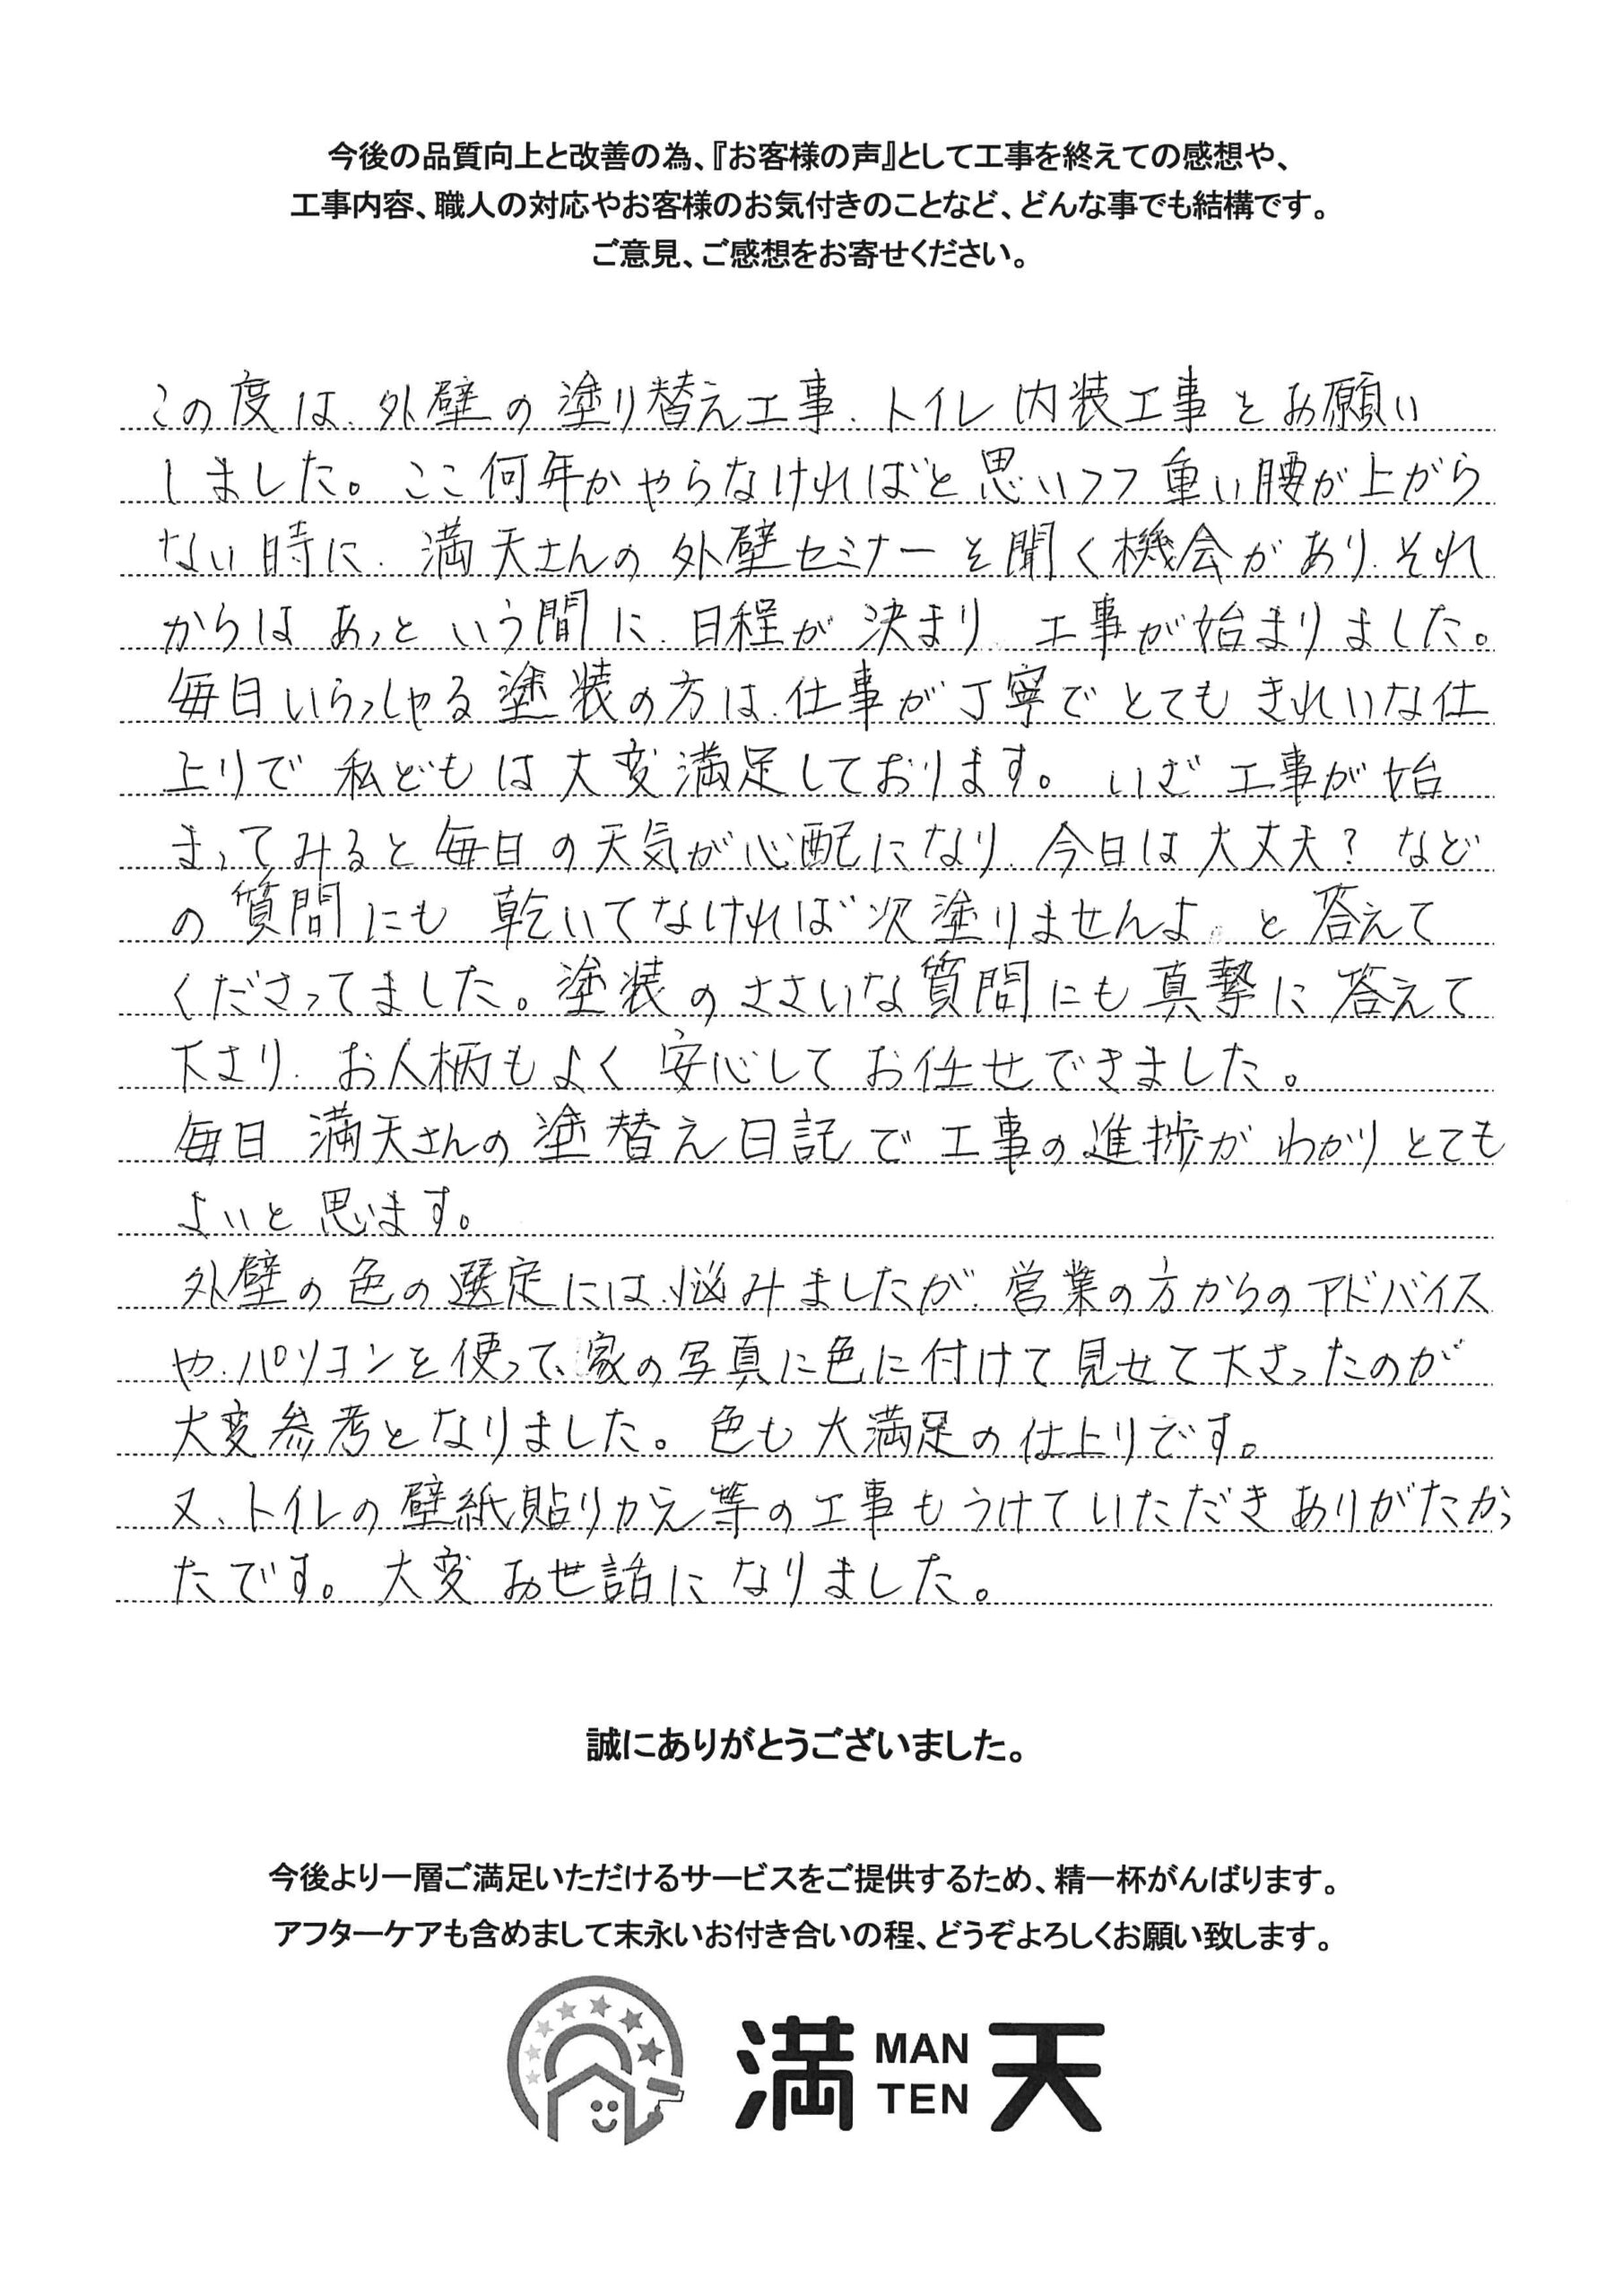 今後の品質向上と改善の為、『お客様の声』として工事を終えての感想や、
工事内容、職人の対応やお客様のお気付きのことなど、どんな事でも結構です。
ご意見、ご感想をお寄せください。
この度は、外壁の塗り替え工事、トイレ内装工事とお願い
しました。ここ何年かやらなければと思いつつ重い腰が上がら
ない時に、満天さんの外壁セミナーを聞く機会があり、それ
からはあっという間に、日程が決まり、工事が始まりました。
毎日いらっしゃる塗装の方は、仕事が丁寧でとてもきれいな仕
上りで私どもは大変満足しております。いざ工事が始
まってみると毎日の天気が心配になり、今日は大丈夫？など
の質問にも乾いてなければ次塗りませんよ。と答えて
くださってました。塗装のささいな質問にも真摯に答えて
下さり、お人柄もよく安心してお任せできました。
毎日満天さんの塗替え日記で工事の進捗がわかりとても
よいと思います。
外壁の色の選定には、悩みましたが、営業の方からのアドバイス
や、パソコンを使って、家の写真に色に付けて見せて下さったのが
大変参考となりました。色も大満足の仕上りです。
又、トイレの壁紙貼りかえ等の工事もうけていただきありがたかっ
たです。大変お世話になりました。
誠にありがとうございました。
今後より一層ご満足いただけるサービスをご提供するため、精一杯がんばります。
アフターケアも含めまして末永いお付き合いの程、どうぞよろしくお願い致します。
満 MAN TEN 天